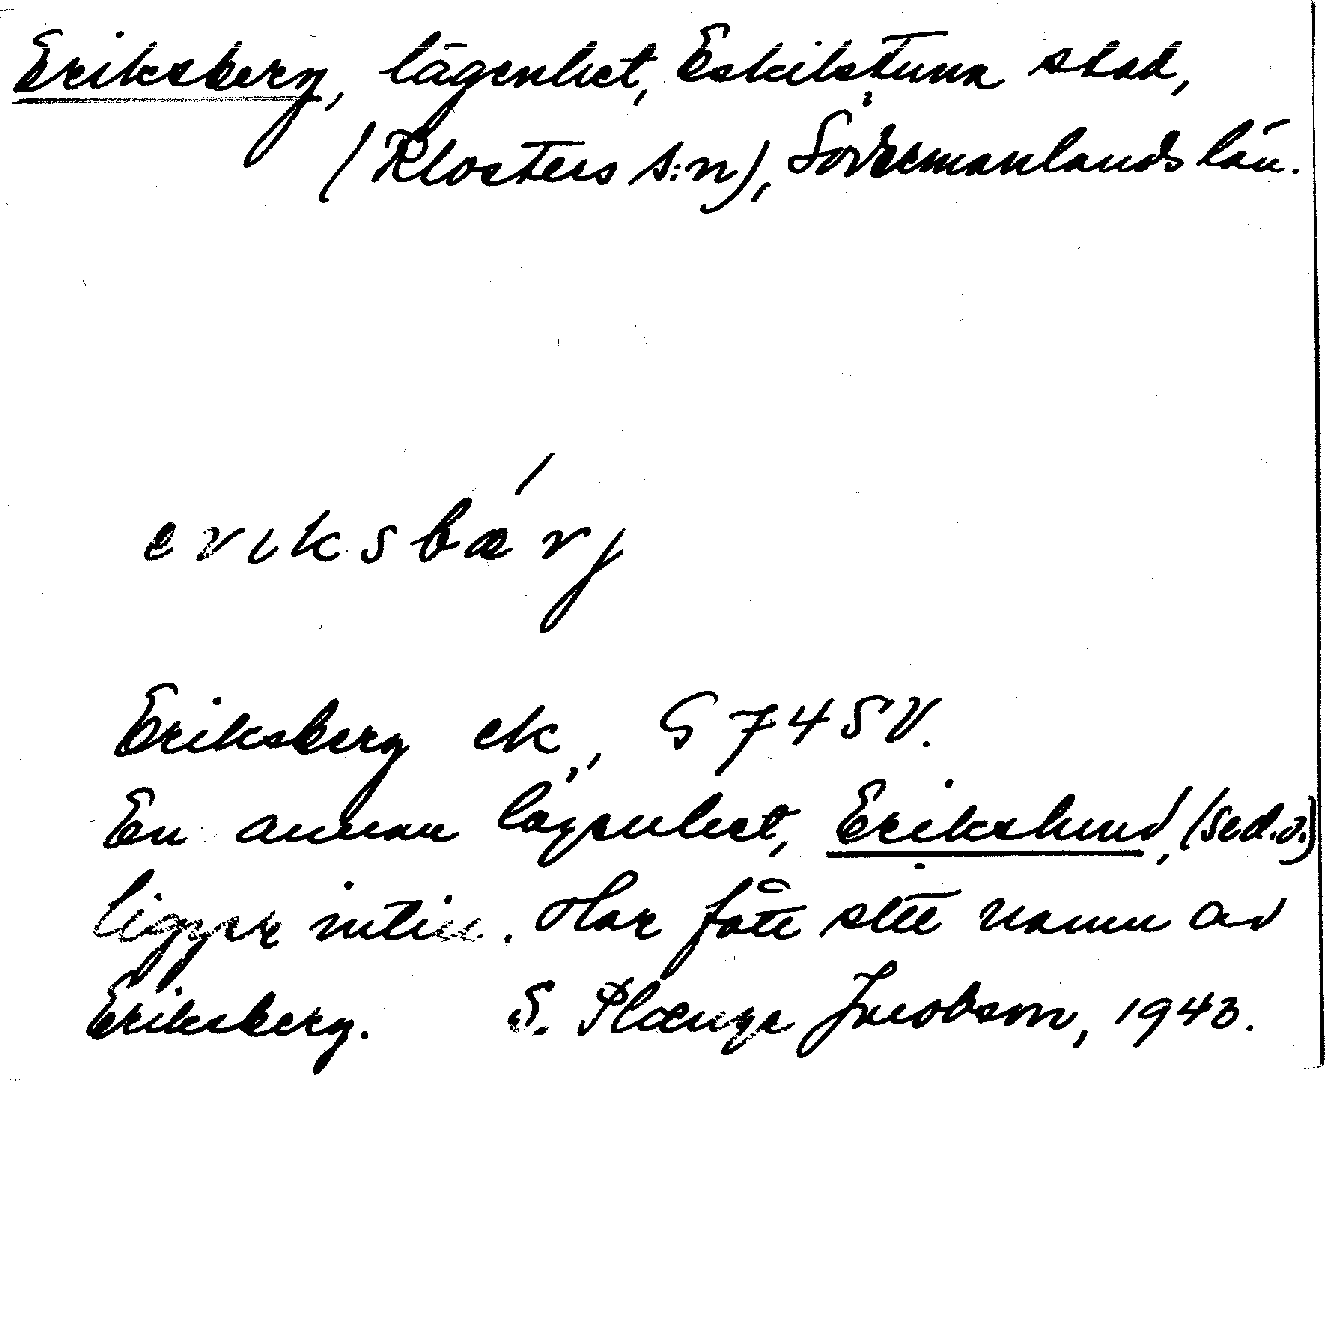 Eriksberg, lägenhet, Eskilstuna stad,
(Klosters s:n), Södermanlands län.
eriksbæ´rj
Eriksberg ek, G 74 SV.
En annan lägenhet, Erikslund, (se d.o.)
ligger intill. Har fått sitt namn av
Eriksberg. S. Plænge Jacobson, 1943.